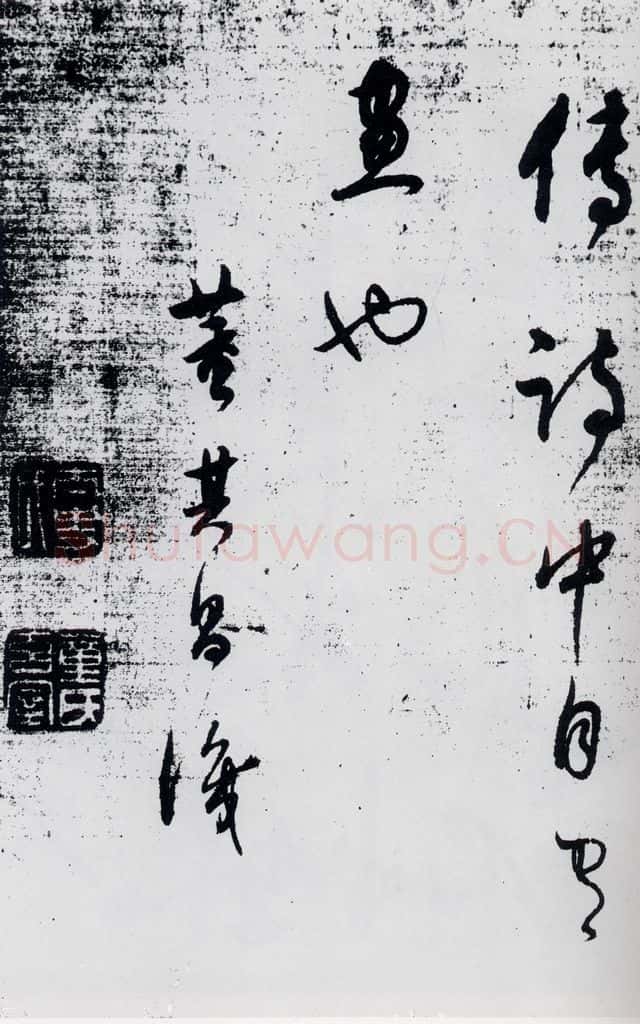 傳詩中自有
畫也
董其昌識
董氏玄宰
Shufawang.CN